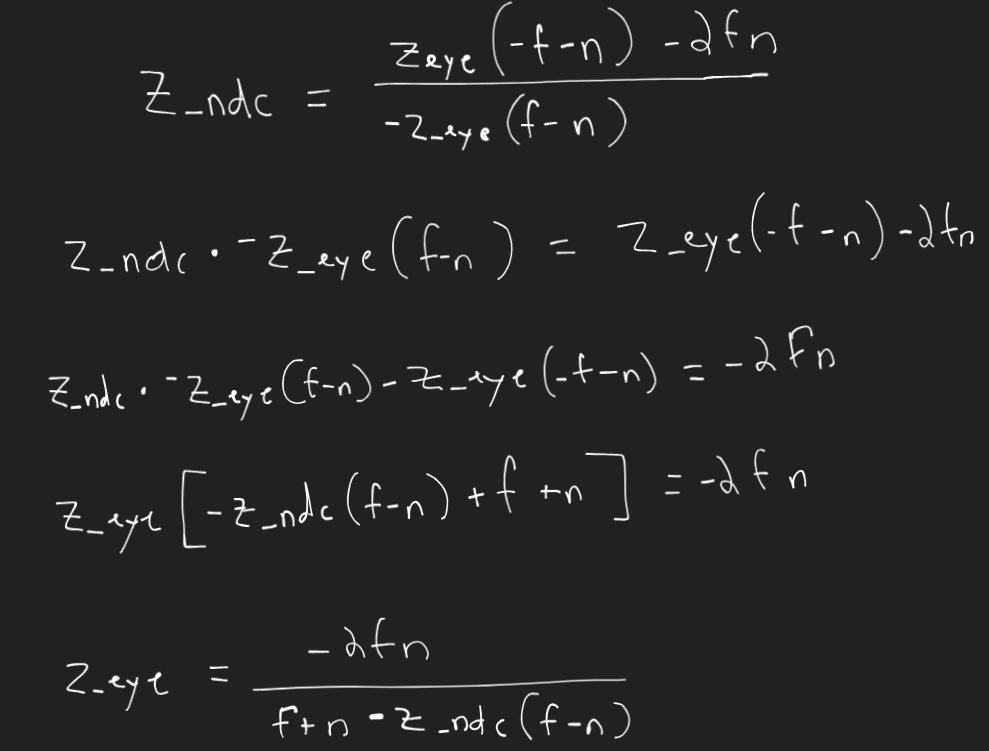 z_ndc = (z_eye(-f-n) -2fn) / (-z_eye(f-n))
z_ndc · -z_eye(f-n) = z_eye(-f-n)-2fn
z_ndc · -z_eye(f-n) - z_eye(-f-n) = -2fn
z_eye[-z_ndc(f-n)+f+n] = -2fn
z_eye = -2fn / (f+n-z_ndc(f-n))